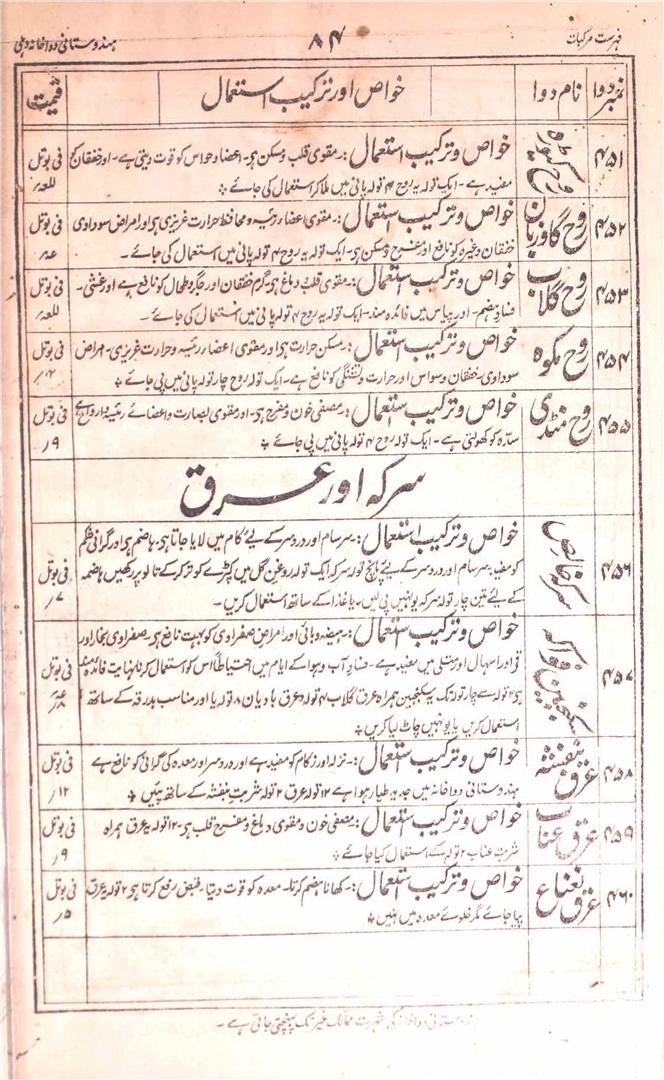 فہرست مرکبات
۸۴
ہندوستانی دواخانہ دہلی
نمبر دوا
نام دوا
خواص اور ترکیب استعمال
قیمت
۴۵۱
روح کیوڑہ
خواص و ترکیب استعمال:۔ مقوی قلب و مسکن ہی۔ اعضا و حواس کو قوت دیتی ہے۔ اور خفقان کو
مفید ہے۔ ایک تولہ یہ روح ۴ تولہ پانی میں ملا کر استعمال کی جائے
فی بوتل
للعہ
۴۵۲
روح گاؤزبان
خواص و ترکیب استعمال:۔ مقوی اعضاء رئیسہ و محافظ حرارت غریزی ہی اور امراض سوداوی
خفقان وغیرہ کو نافع اور مفرح و مسکن ہی۔ ایک تولہ یہ روح ۴ تولہ پانی میں استعمال کی جائے۔
فی بوتل
۴۵۳
روح گلاب
خواص و ترکیب استعمال:۔ مقوی قلب و دماغ ہی۔ گرم خفقان اور جگر و طحال کو نافع ہے اور غشی۔
فساد ہضم۔ اور پیاس میں فائدہ مند۔ ایک تولہ یہ روح ۴ تولہ پانی میں استعمال کی جائے۔
فی بوتل
للعہ
۴۵۴
روح مکوہ
خواص و ترکیب استعمال:۔ مسکن حرارت ہی اور مقوی اعضاء رئیسہ و حرارت غریزی۔ امراض
سوداوی۔ خفقان و وسواس اور حرارت و تشنگی کو نافع ہے۔ ایک تولہ روح چار تولہ پانی میں پی جائے
فی بوتل
۴۵۵
روح منڈی
خواص و ترکیب استعمال:۔ مصفی خون و مفرح ہی۔ اور مقوی بصارت و اعضائے رئیسہ و ارواح ہے
سدّہ کو کھولتی ہے۔ ایک تولہ روح ۴ تولہ پانی میں پی جائے
فی بوتل
۹؍
سرکہ اور عرق
۴۵۶
سرکہ خالص
خواص و ترکیب استعمال:۔ سرسام اور دردسر کے لیے کام میں لایا جاتا ہی۔ ہاضم ہی اور گرانی شکم
کو مفید۔ سرسام اور دردسر کے لیے پانچ تولہ سرکہ ایک تولہ روغن گل میں کپڑے کو تر کر کے تالو پر رکھیں ہاضمہ
کے لئے تین چار تولہ سرکہ یونہیں پی لیں۔ یا غذا کے ساتھ استعمال کریں۔
فی بوتل
۷؍
۴۵۷
سکنجبین فواکہ
خواص و ترکیب استعمال:۔ ہیضہ وبائی اور امراض صفراوی کو بہت نافع ہی۔ صفراوی بخار اور
قے اور اسہال اور متلی میں مفید ہے۔ فساد آب و ہوا کے ایام میں احتیاطاً اس کو استعمال کرنا نہایت فائدہ مند
ہی ۲ تولہ سے چار تولہ تک یہ سکنجبین ہمراہ عرق گلاب ۴ تولہ عرق بادیان ۸ تولہ یا اور مناسب بدرقہ کے ساتھ
استعمال کریں یا یونہیں چاٹ لیا کریں
فی بوتل
۴۵۸
عرق بنفشہ
خواص و ترکیب استعمال:۔ نزلہ اور زکام کو مفید ہے اور دردسر اور معدہ کی گرانی کو نافع ہے
ہندوستانی دواخانہ میں جدید طیار ہوا ہے ۱۲ تولہ عرق ۲ تولہ شربت بنفشہ کے ساتھ پئیں
فی بوتل
۱۲؍
۴۵۹
عرق عناب
خواص و ترکیب استعمال:۔ مصفی خون و مقوی دماغ و مفرح قلب ہی۔ ۱۲ تولہ یہ عرق ہمراہ
شربت عناب ۲ تولہ کے استعمال کیا جائے
فی بوتل
۹؍
۴۶۰
عرق نعناع
خواص و ترکیب استعمال:۔ کھانا ہضم کرتا۔ معدہ کو قوت دیتا۔ قبض رفع کرتا ہی ۲ تولہ یہ عرق
پیا جائے مگر خلوئے معدہ میں نہیں
فی بوتل
۵؍
ہندوستانی دواخانہ کی شہرت ممالک غیر تک پہنچتی جاتی ہے۔